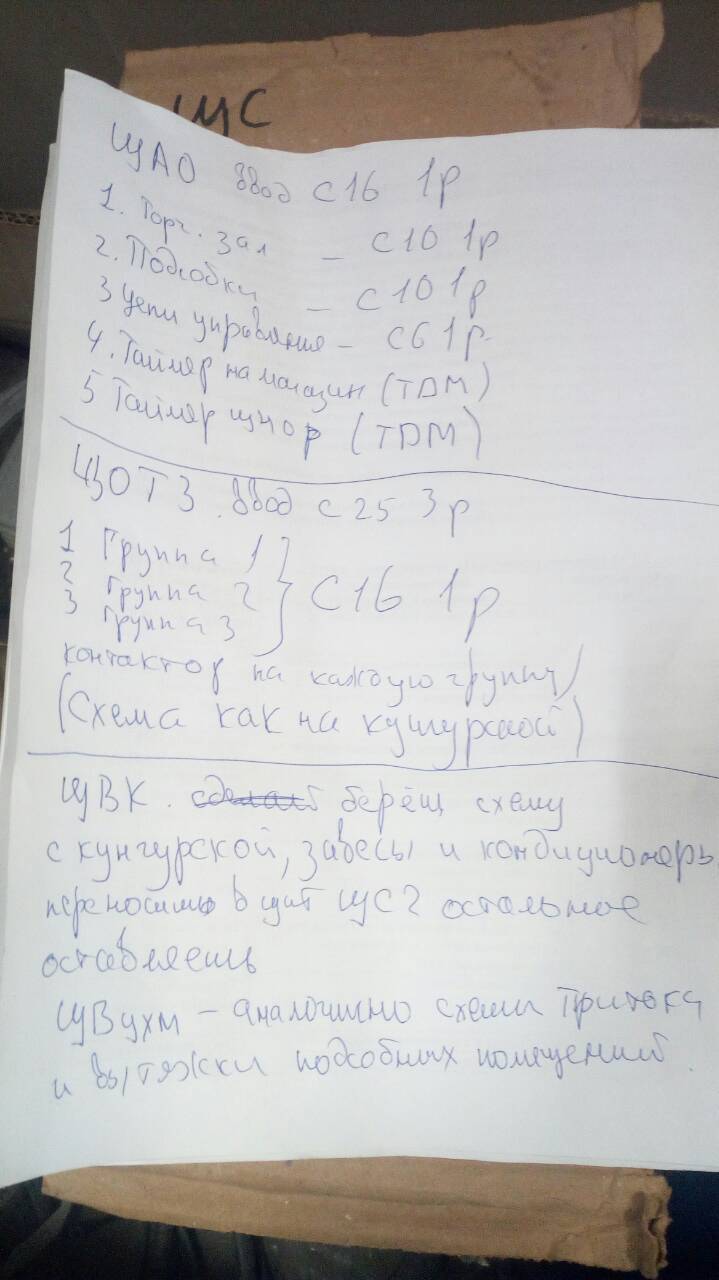 ЩС
ЩАО ввод С16 1р
1. Торг. зал – С10 1р
2. Подсобки – С10 1р
3 Цепи управления – С6 1р.
4. Таймер на магазин (TDM)
5 Таймер щнор (TDM)
ЩОТ 3. Ввод С25 3р
1 Группа 1
2 Группа 2 } С16 1р
3 Группа 3
контактор на каждую группу
(Схема как на кунгурской)
ЩВК. берёш схему
с кунгурской, завесы и кондиционеры
переносишь в щит ЩС2 остальное
оставляешь
ЩВухм – аналогично схемы притока
и вытяжки подсобных помещений.